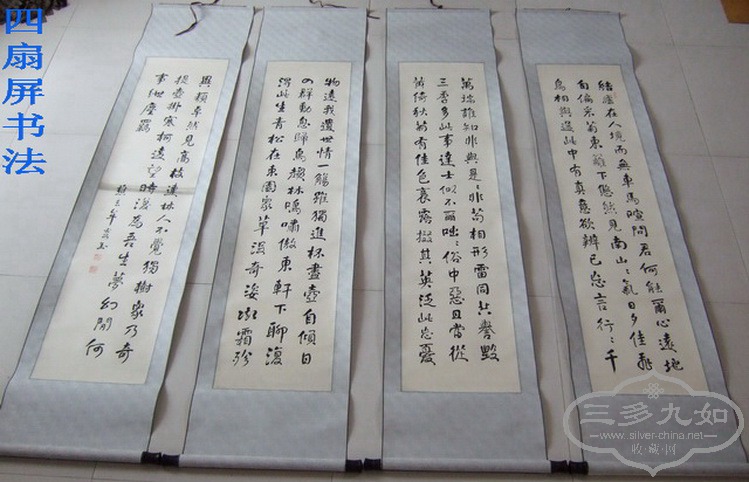 四扇屏书法
結廬在人境而無車馬喧問君何能爾心遠地
自偏采菊東籬下悠然見南山〻氣日夕佳飛
鳥相與還此中有真意欲辨已忘言行〻千
萬端誰知非與是〻非苟相形雷同共譽毀
三季多此事達士似不爾咄〻俗中惡且當從
黃綺秋菊有佳色裛露掇其英泛此忘憂
物遠我遺世情一觴雖獨進杯盡壺自傾日
入群動息歸鳥趨林鳴嘯傲東軒下聊復
得此生青松在東園眾草沒奇姿凝霜殄
異類卓然見高枝連林人不覺獨樹眾乃奇
提壺掛寒柯遠望時復為吾生夢幻間何
事紲塵羈
三多九如
www.silver-china.net
收·藏·网